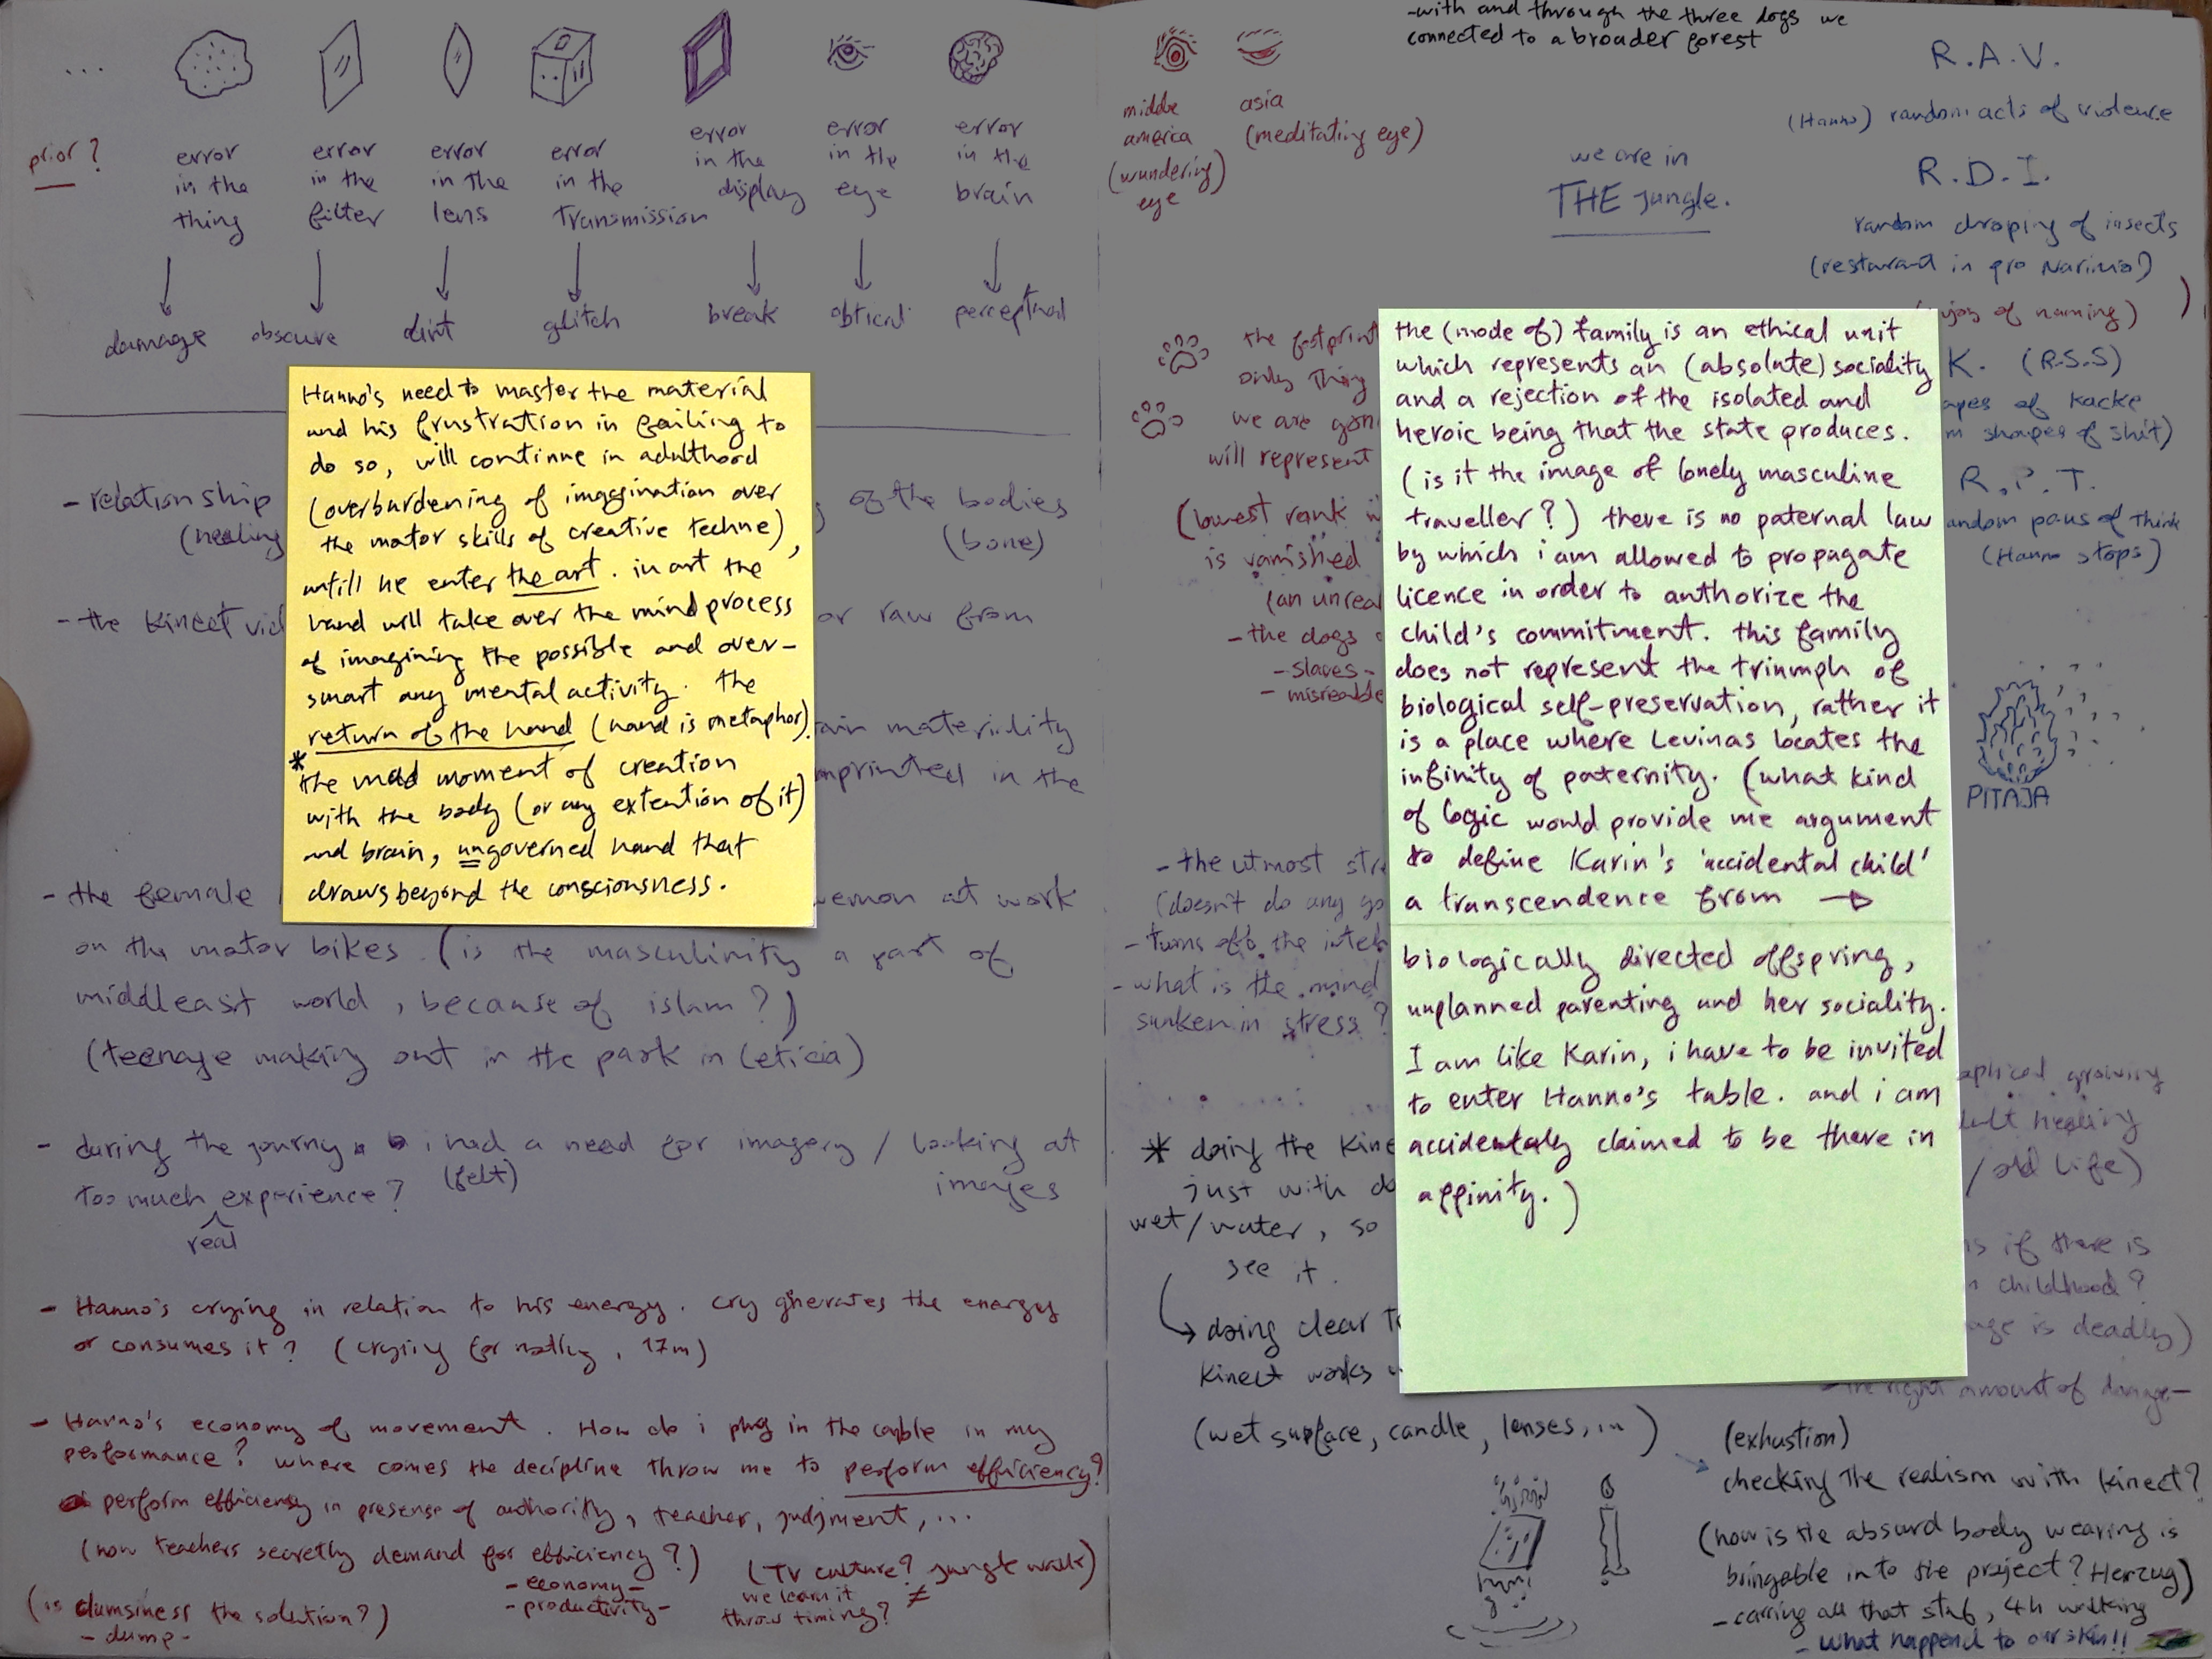 ...
prior?
error
in the
thing
error
in the
filter
error
in the
lens
error
in the
Transmission
error
in the
display
error
in the
eye
error
in the
brain
damage
obscure
dirt
glitch
break
obtical
perceptual
Hanno's need to master the material
and his frustration in failing to
do so, will continue in adulthood
(overburdening of imagination over
the motor skills of creative techne),
untill he enter the art. in art the
hand will take over the mind process
of imagining the possible and over-
smart any mental activity. the
return of the hand (hand is metaphor).
* the mad moment of creation
with the body (or any extention of it)
and brain, ungoverned hand that
draws beyond the consciousness.
- relationship
(healing
of the bodies
(bone)
- the Kinect vid
or raw from
materiality
imprinted in the
- the female
at work
on the motor bikes. (is the masculinity a part of
middleeast world, because of islam?)
(teenage making out in the park in Leticia)
- during the journy i had a need for imagery / looking at
(felt)
images
too much experience?
real
- Hanno's crying in relation to his energy. cry gnerates the energy
or consumes it? (crying for nothing, 17m)
- Hanno's economy of movement. How do i plug in the cable in my
performance? where comes the decipline throw me to perform efficiency?
perform efficiency in presense of authority, teacher, judjment, ...
(how teachers secretly demand for efficiency?)
- economy -
- productivity -
(TV culture? jungle walk)
we learn it
throw timing? ≠
(is clumsiness the solution?)
- dump -
middle
america
(wundering)
eye
asia
(meditating eye)
-with and through the three dogs we
connected to a broader forest
we are in
THE jungle.
R.A.V.
(Hanno) random acts of violence
R.D.I.
random droping of insects
(restaurant in
joy of naming)
K. (R.S.S)
apes of Kacke
m shapes of shit)
R.P.T.
andom paus of think
(Hanno stops)
the footprint
only thing
we are gon
will represent
(lowest rank
is vanished
(an unreal
- the dogs
- slaves -
- misreable
the (mode of) family is an ethical unit
which represents an (absolute) sociality
and a rejection of the isolated and
heroic being that the state produces.
(is it the image of lonely masculine
traveller?) there is no paternal law
by which i am allowed to propagate
licence in order to authorize the
child's commitment. this family
does not represent the triumph of
biological self-preservation, rather it
is a place where Levinas locates the
infinity of paternity. (what kind
of logic would provide me argument
to define Karin's 'accidental child'
a transcendence from →
biologically directed offspring,
unplanned parenting and her sociality.
I am like Karin, i have to be invited
to enter Hanno's table. and i am
accidentaly claimed to be there in
affinity.)
PITAJA
- the utmost stre
(doesn't do any go
- turns off the intel
- what is the mind
sunken in stress?
growing
healing
/ old life)
is if there is
childhood?
age is deadly)
- the right amount of damage -
* doing the Kine
just with
wet/water, so
see it.
doing clear
Kinect works
(wet surface, candle, lenses, ...)
(exhustion)
checking the realism with kinect?
(how is the absurd body wearing is
bringable into the project? Herzug)
- carring all that stuf, 4h walking
- what happend to our skin!!